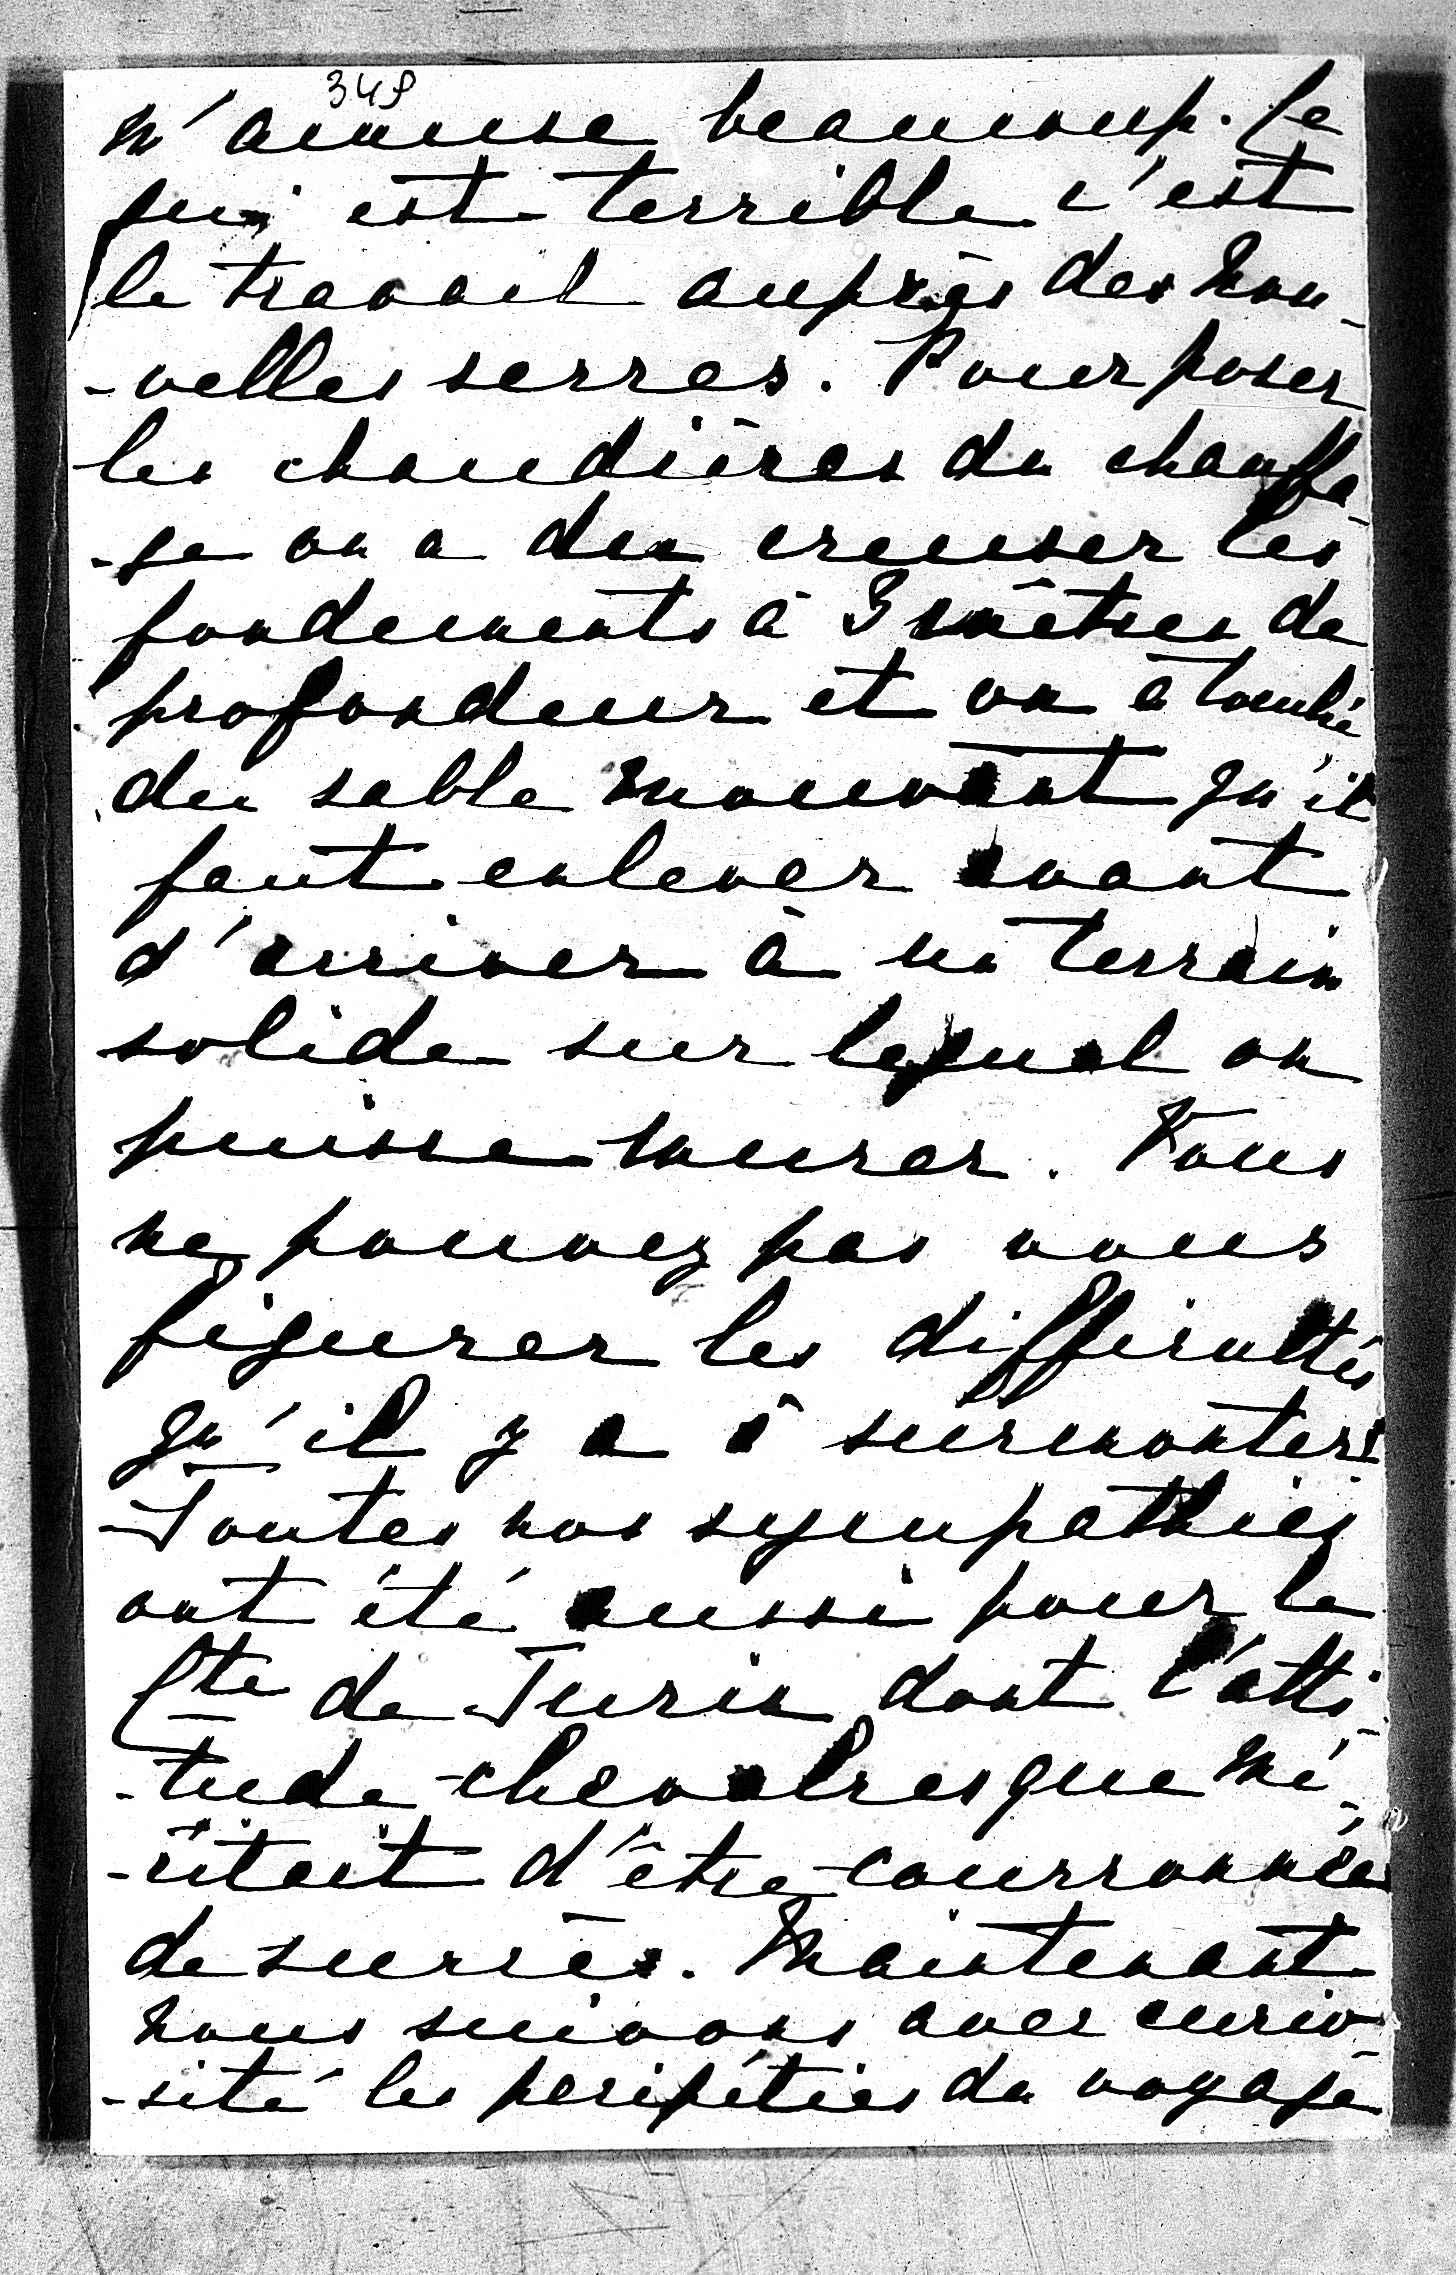 348
m'amuse beaucoup. Ce
qui est terrible c'est
le travail auprès des nou-
-velles serres. Pour poser
les chaudières du chauffa-
-ge on a du creuser les
fondements à 3 mètres de
profondeur et on a touché
du sable mouvant qu'il
faut enlever avant
d'arriver à un terrain
solide sur lequel on
puisse murer. Vous
ne pouvez pas vous
figurer les difficultés
qu'il y a à surmonter!
Toutes nos sympathies
ont été aussi pour le
Cte de Turin dont l'atti-
-tude chevalresque mé-
-ritait d'être courronnée
de succès. Maintenant
nous suivons avec curio-
-sité les péripéties du voyage